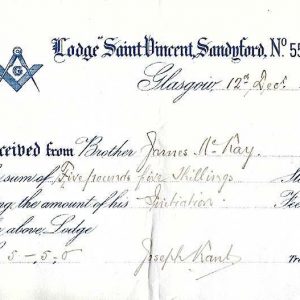 G
Lodge Saint Vincent, Sandyford, No 55
Glasgow, 12th Decr
ceived from Brother James McKay
sum of Five pounds five Shillings
ng the amount of his Initiation
above Lodge
5-5-0
Joseph